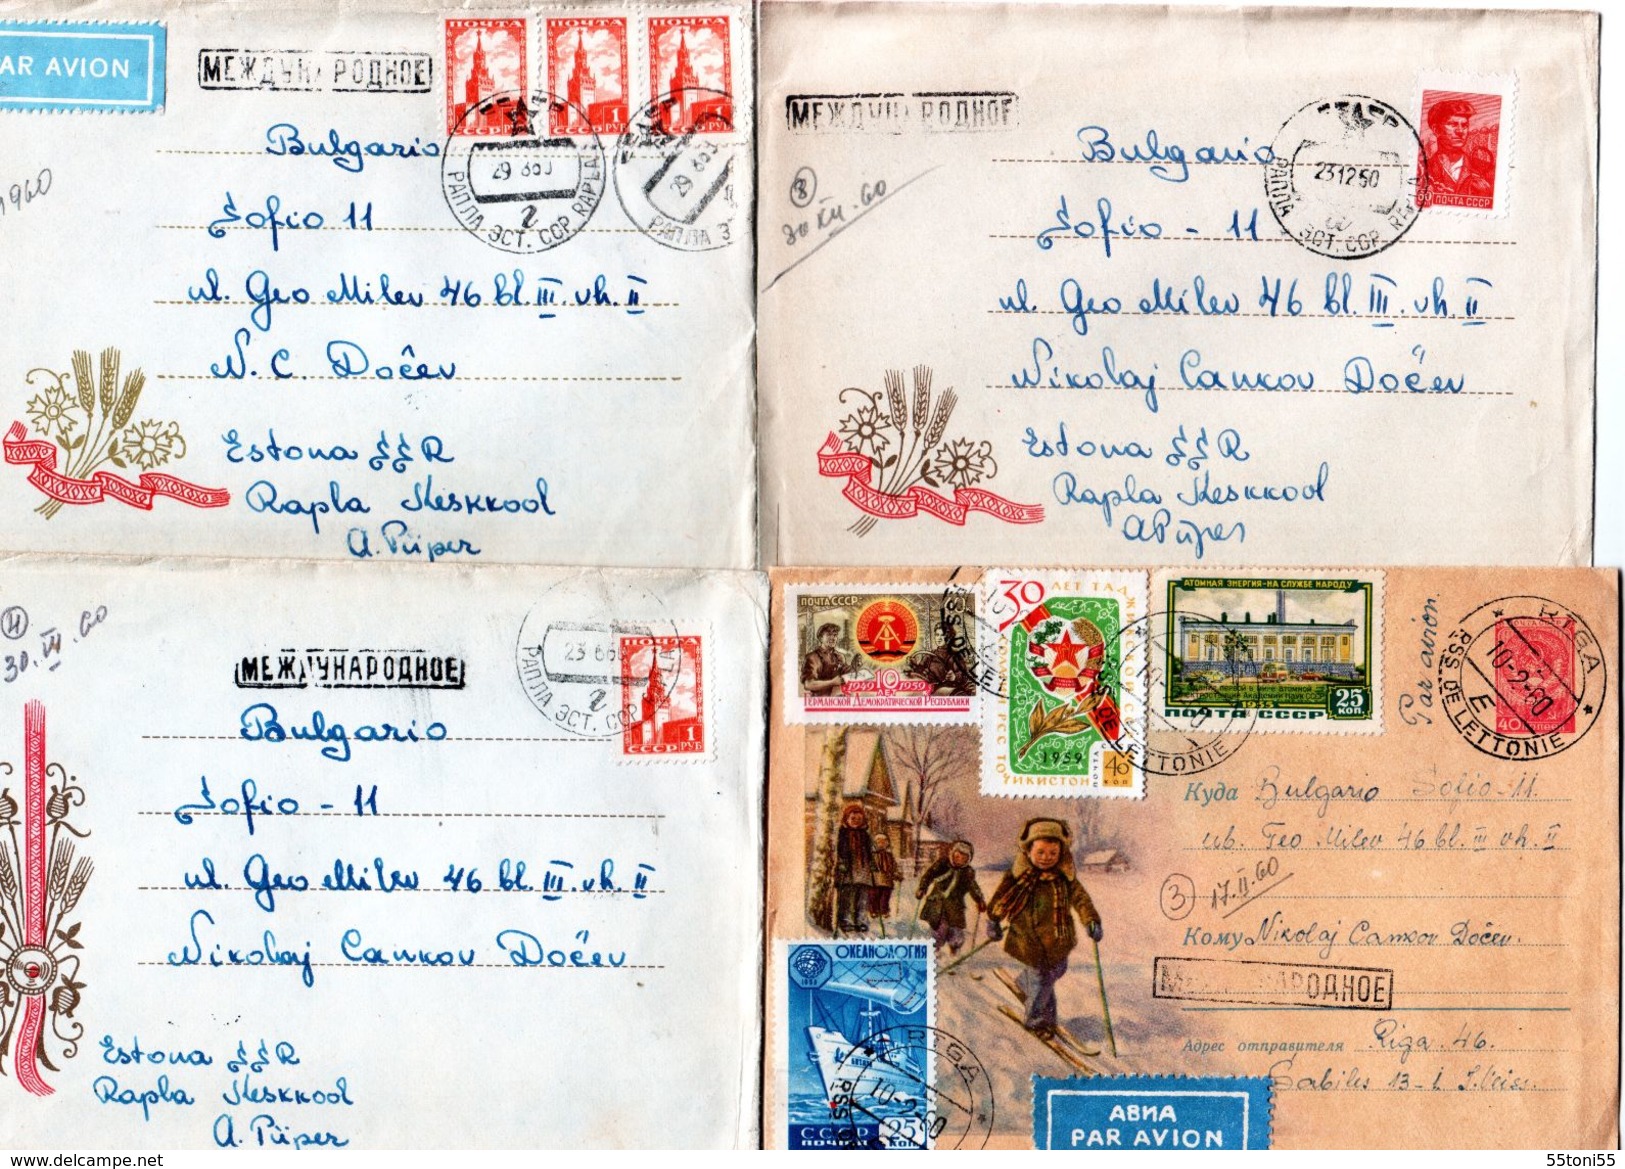 PAR AVION
МЕЖДУНАРОДНОЕ
ПОЧТА
ПОЧТА
ПОЧТА
СССР
СССР 1 РУБ
СССР 1 РУБ
РАПЛА ЭСТ. ССР RAPLA
29 3 60
29 3 60
РАПЛА Э
1960
Bulgario
Sofio 11
ul. Geo Milev 46 bl. III. vh. II
N. C. Dočev
Estona SSR
Rapla Keskkool
A. Püper
МЕЖДУНАРОДНОЕ
ПОЧТА СССР
23 12 60
РАПЛА ЭСТ. ССР RAPLA
8
30 XII. 60
Bulgario
Sofio - 11
ul. Geo Milev 46 bl. III. vh. II
Nikolaj Cankov Dočev
Estona SSR
Rapla Keskkool
A Püper
4
30. VI. 60
МЕЖДУНАРОДНОЕ
ПОЧТА
СССР 1 РУБ
23 6 60
РАПЛА ЭСТ. ССР RAPLA
Bulgario
Sofio - 11
ul. Geo Milev 46 bl. III vh. II
Nikolaj Cankov Dočev
Estona SSR
Rapla Keskkool
A. Püper
ПОЧТА СССР
1949 10 1959
ЛЕТ
Германской Демократической Республики
30 ЛЕТ ТАДЖИКСКОЙ ССР
СОЛИ РСС ТОҶИКИСТОН
1959
40 КОП
АТОМНАЯ ЭНЕРГИЯ-НА СЛУЖБЕ НАРОДУ
1955
ПОЧТА СССР 25 КОП.
Par avion
RIGA
10-2-60
E
RSS DE LETTONIE
40
Куда Bulgario Sofio-11.
ul. Geo Milev 46 bl. III vh. II
3 17. II. 60
Кому Nikolaj Cankov Dočev.
МЕЖДУНАРОДНОЕ
Адрес отправителя Riga. 46.
Sabiles 13-1 J. Veiss.
ОКЕАНОЛОГИЯ
СССР 25 КОП.
ПОЧТА
RIGA
10-2-60
АВИА
PAR AVION
55toni55